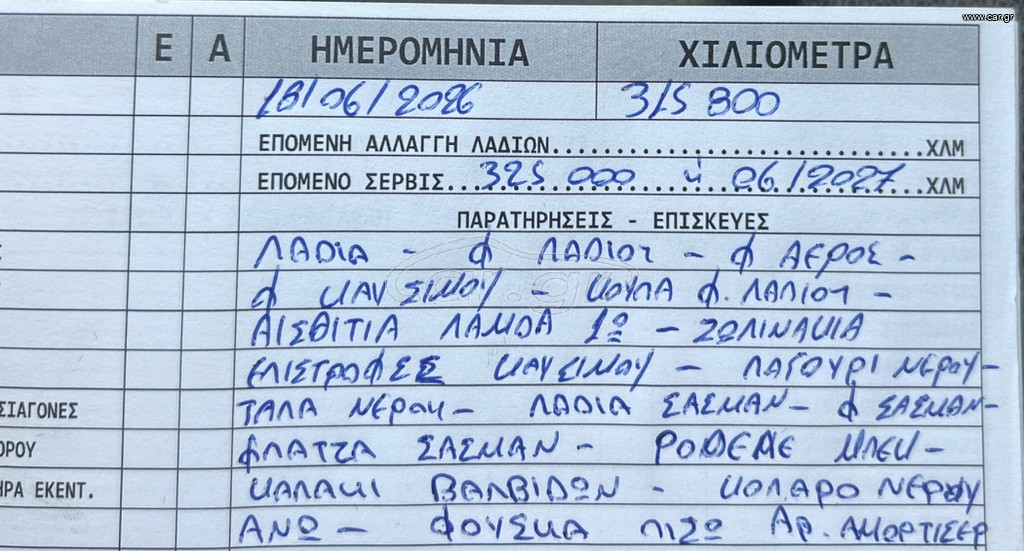 www.car.gr
Ε Α ΗΜΕΡΟΜΗΝΙΑ ΧΙΛΙΟΜΕΤΡΑ
18/06/2026 315 800
ΕΠΟΜΕΝΗ ΑΛΛΑΓΗ ΛΑΔΙΩΝ..............................ΧΛΜ
ΕΠΟΜΕΝΟ ΣΕΡΒΙΣ...325 000 ή 06/2027...ΧΛΜ
ΠΑΡΑΤΗΡΗΣΕΙΣ - ΕΠΙΣΚΕΥΕΣ
ΛΑΔΙΑ - Φ ΛΑΔΙΟΥ - Φ ΑΕΡΟΣ -
Φ ΚΑΥΣΙΜΟΥ - ΚΟΥΠΑ Φ. ΛΑΔΙΟΥ -
ΑΙΣΘΙΤΙΑ ΛΑΜΔΑ 1Ω - ΣΩΛΙΝΑΚΙΑ
ΕΠΙΣΤΡΟΦΕΣ ΚΑΥΣΙΜΟΥ - ΠΑΓΟΥΡΙ ΝΕΡΟΥ -
ΣΙΑΓΟΝΕΣ ΤΑΠΑ ΝΕΡΟΥ - ΛΑΔΙΑ ΣΑΣΜΑΝ - Φ ΣΑΣΜΑΝ -
ΟΡΟΥ ΦΛΑΤΖΑ ΣΑΣΜΑΝ - ΜΠΕΚ -
ΗΡΑ ΕΚΕΝΤ. ΚΑΠΑΚΙ ΒΑΛΒΙΔΩΝ - ΚΟΛΑΡΟ ΝΕΡΟΥ
ΑΝΩ - ΦΟΥΣΚΑ ΠΙΣΩ ΑΡ. ΑΜΟΡΤΙΣΕΡ